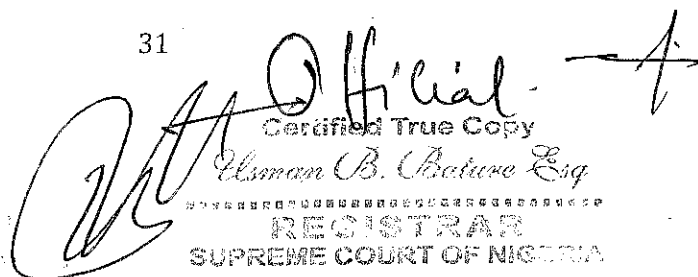 31
Official.
Certified True Copy
Usman B. Bature Esq
REGISTRAR
SUPREME COURT OF NIGERIA